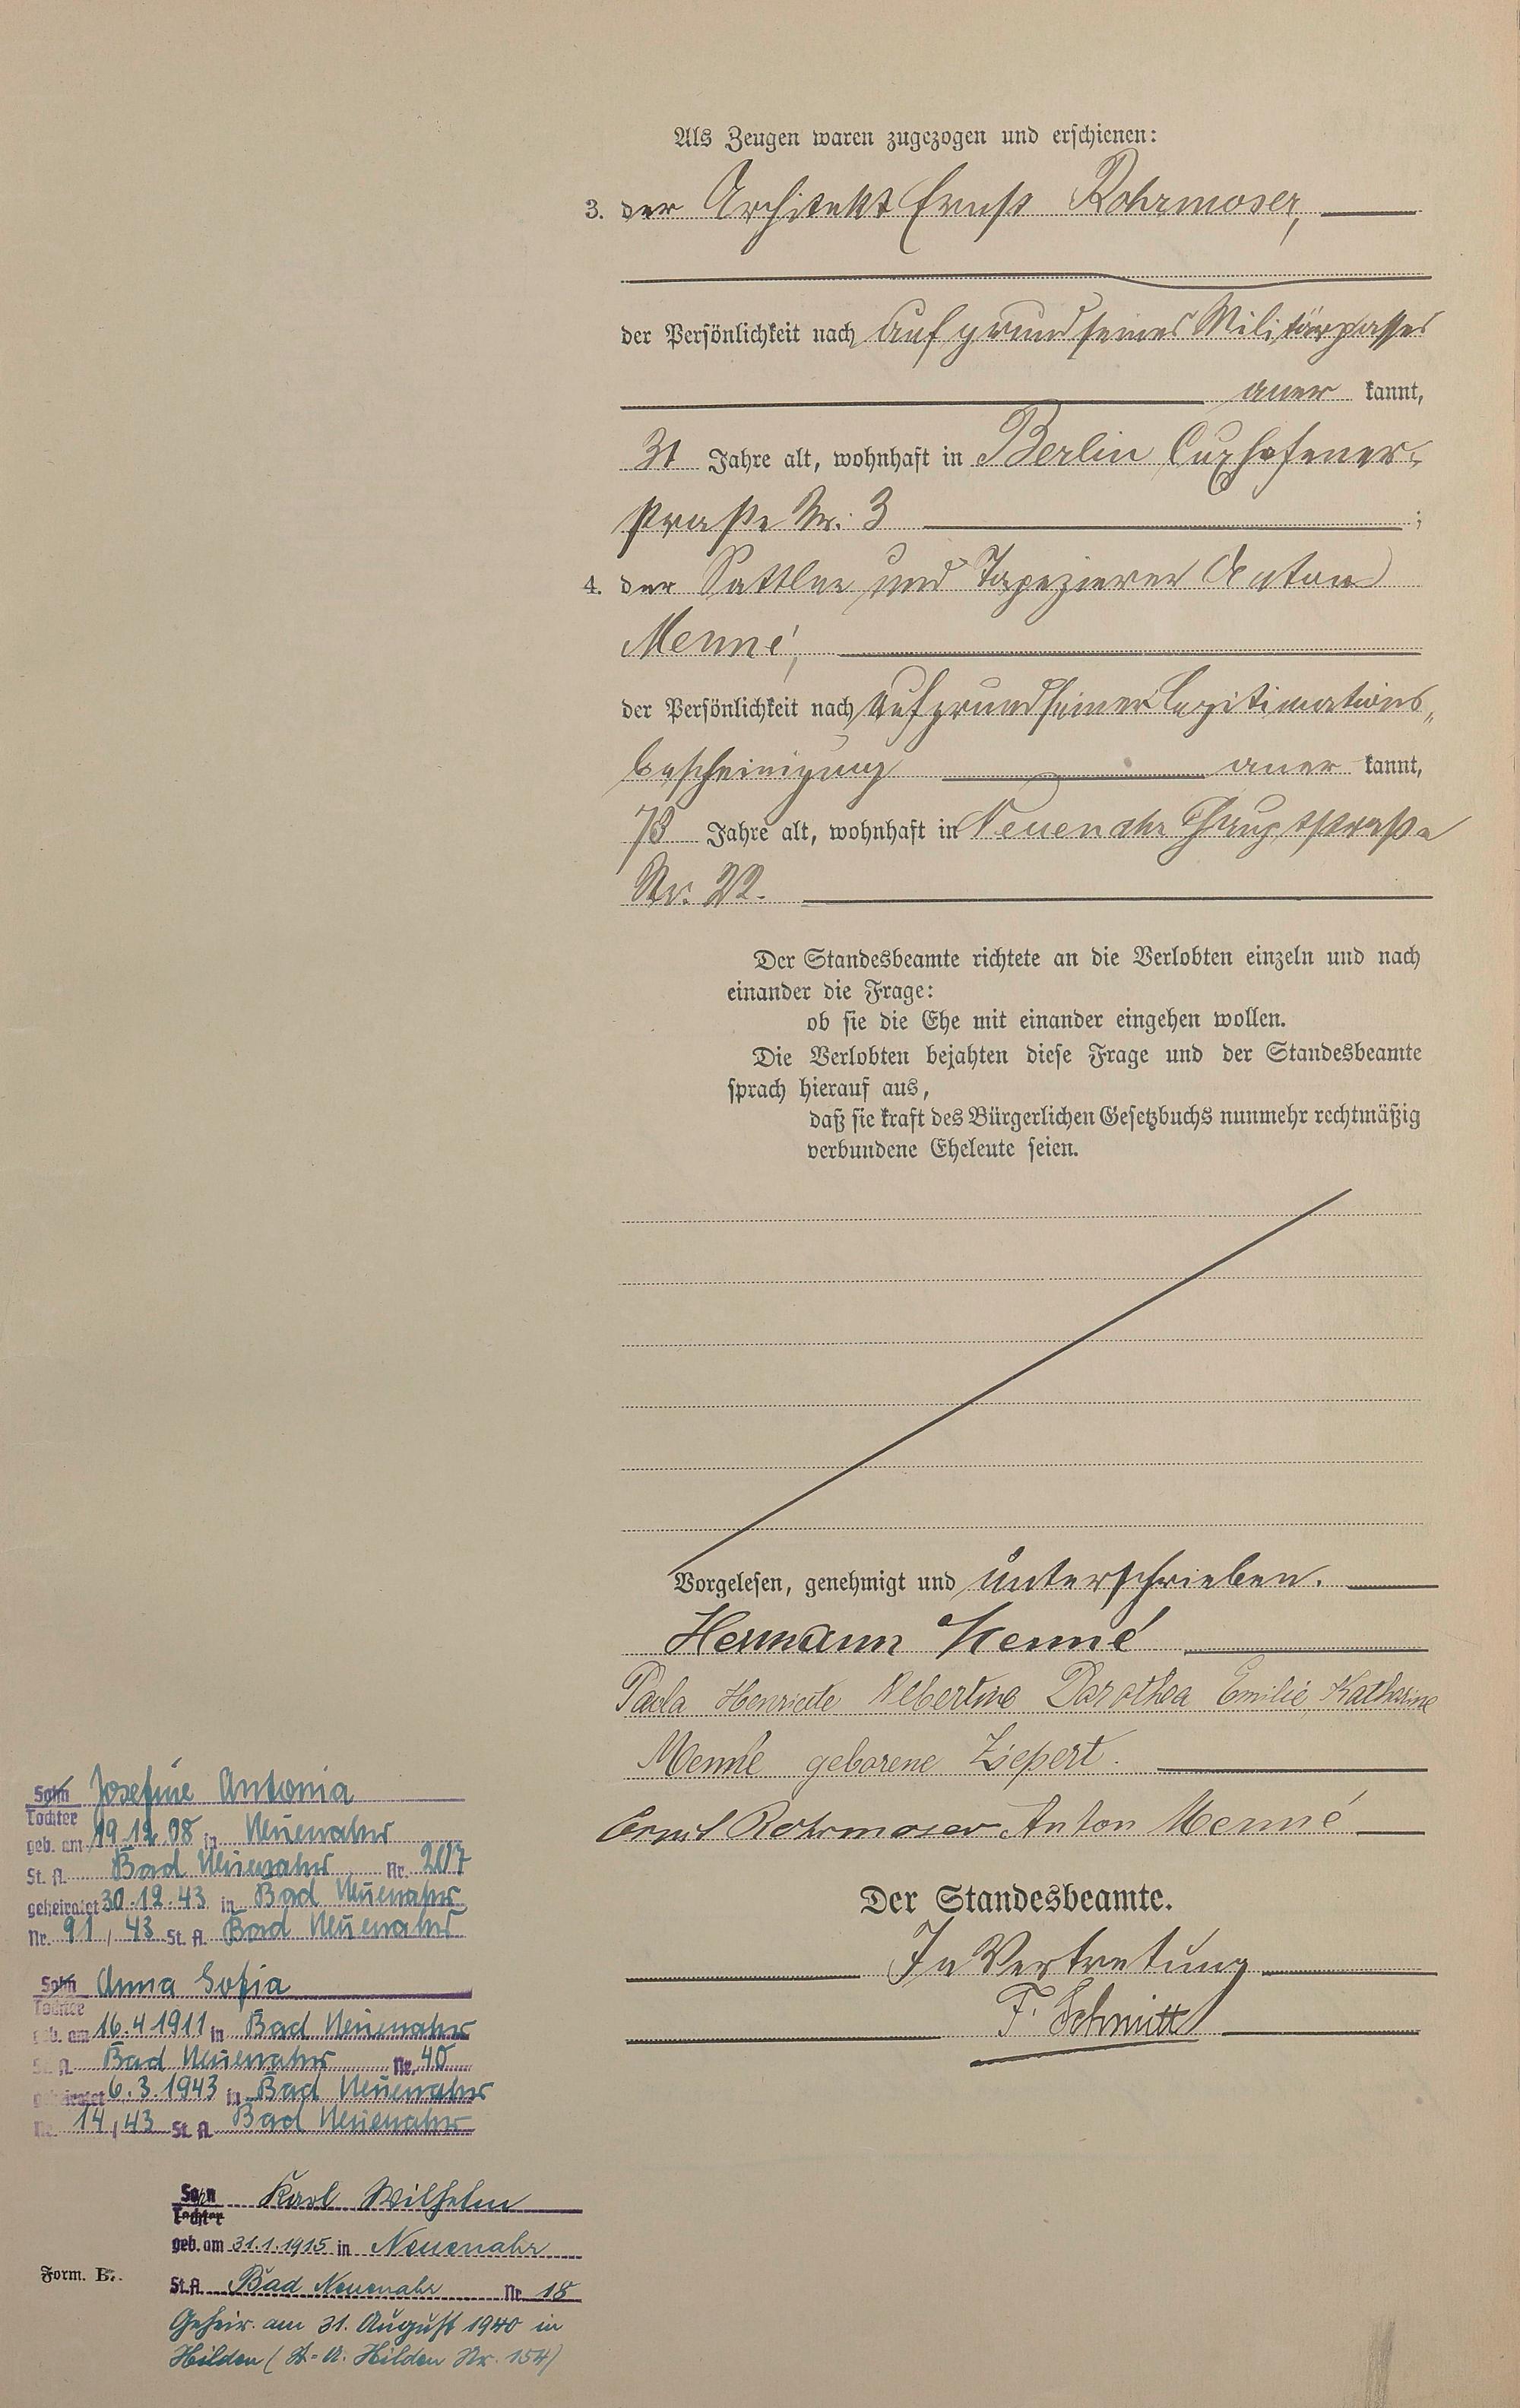 Als Zeugen waren zugezogen und erschienen:
3. der Architekt Ernst Rohrmoser,
der Persönlichkeit nach auf grund seines Militärpasses
aner kannt,
31 Jahre alt, wohnhaft in Berlin Cuxhafener-
straße Nr. 3 ;
4. der Sattler und Tapezierer Anton
Menné,
der Persönlichkeit nach auf grund seiner Legitimations„
bescheinigung aner kannt,
73 Jahre alt, wohnhaft in Neuenahr Hauptstraße
Nr. 22.
Der Standesbeamte richtete an die Verlobten einzeln und nach
einander die Frage:
ob sie die Ehe mit einander eingehen wollen.
Die Verlobten bejahten diese Frage und der Standesbeamte
sprach hierauf aus,
daß sie kraft des Bürgerlichen Gesetzbuchs nunmehr rechtmäßig
verbundene Eheleute seien.
Vorgelesen, genehmigt und unterschrieben.
Hermann Menné
Paola Henriette Albertine Dorothea Emilie Katharine
Menné geborene Ziepert.
Ernst Rohrmoser Anton Menné
Der Standesbeamte.
In Vertretung
F. Schmitt
Sohn Josefine Antonia
Tochter
geb. am 19.12.08 in Neuenahr
St. A. Bad Neuenahr Nr. 207
geheiratet 30.12.43 in Bad Neuenahr
Nr. 91 / 43 St. A. Bad Neuenahr
Sohn Anna Sofia
Tochter
geb. am 16.4.1911 in Bad Neuenahr
St. A. Bad Neuenahr Nr. 40
geheiratet 6.3.1943 in Bad Neuenahr
Nr. 14 / 43 St. A. Bad Neuenahr
Sohn Karl Wilhelm
Tochter
geb. am 31.1.1915 in Neuenahr
St. A. Bad Neuenahr Nr. 18
Geheir. am 31. August 1940 in
Hilden (St.=A. Hilden Nr. 154)
Form. B.